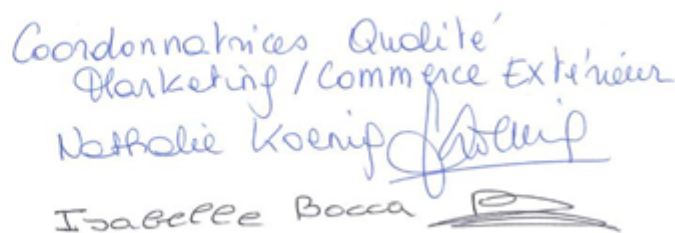 Coordonnatrices Qualité
Marketing / Commerce Extérieur
Nathalie Koenig Koenig
Isabelle Bocca